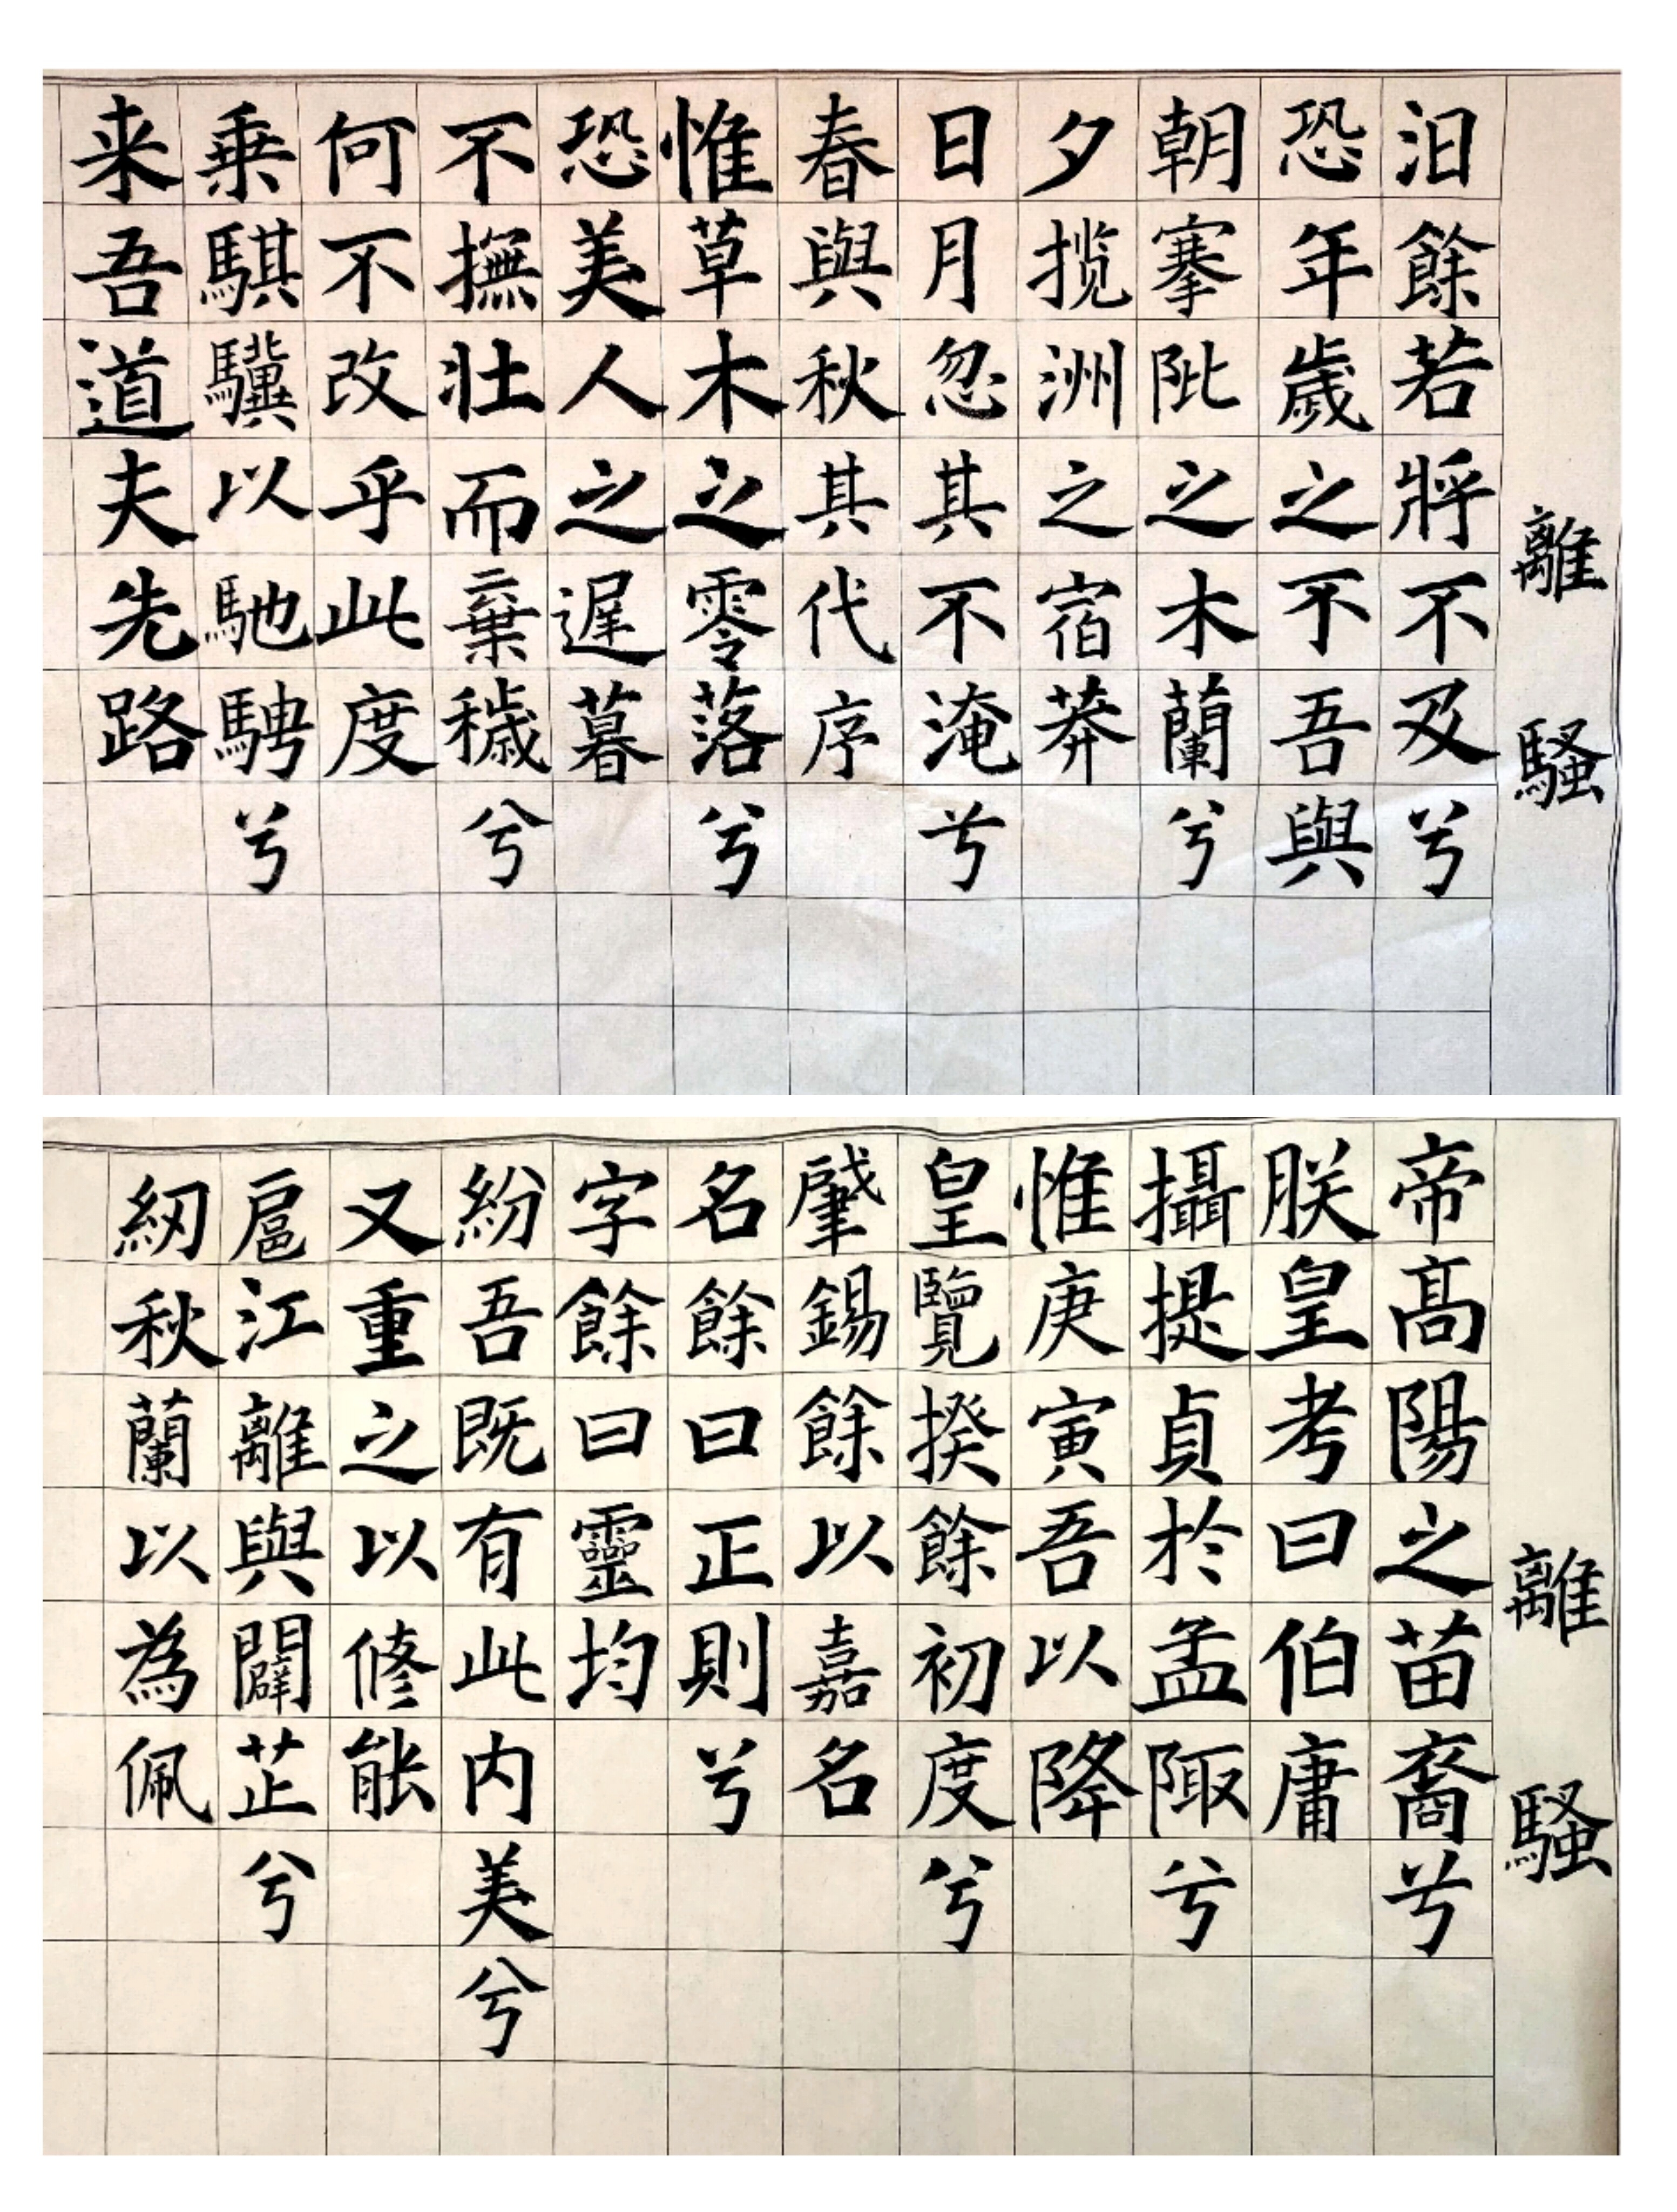 離騷
汩餘若將不及兮
恐年歲之不吾與
朝搴阰之木蘭兮
夕揽洲之宿莽
日月忽其不淹兮
春與秋其代序
惟草木之零落兮
恐美人之遲暮
不撫壯而棄穢兮
何不改乎此度
乗騏驥以馳騁兮
来吾道夫先路
離騷
帝高陽之苗裔兮
朕皇考曰伯庸
攝提貞於孟陬兮
惟庚寅吾以降
皇覽揆餘初度兮
肇錫餘以嘉名
名餘曰正則兮
字餘曰靈均
紛吾既有此内美兮
又重之以修能
扈江離與闢芷兮
紉秋蘭以為佩